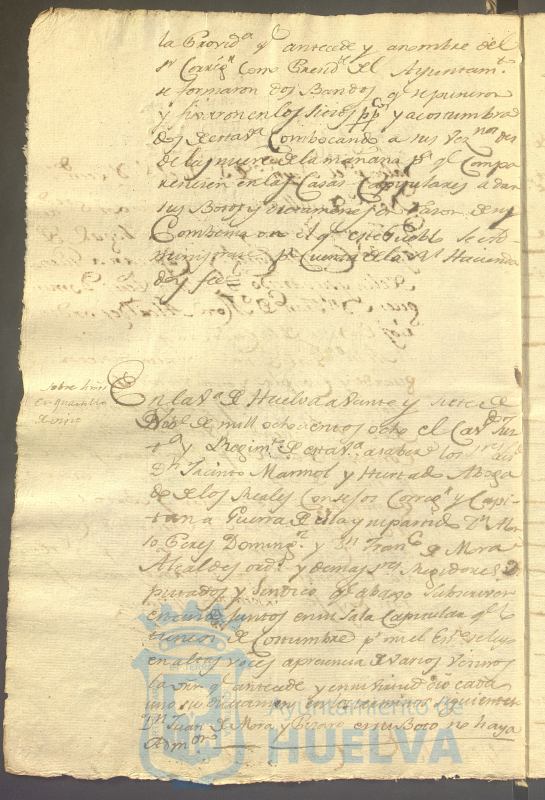 la Provid.ª q.e antecede y a nombre del
S.r Corrég.r como Presid.te del Ayuntam.to
se formaron dos Bandos q.e se pusieron
y fixaron en los sitios pp.cos y acostumbra
dos de esta v.ª Combocando a sus Vez.nos
de las nueve de la mañana p.ª q.e Compa
reciesen en las Casas Capitulares a dar
sus Botos y
Combenia o no el q.e este Pueblo se ad-
ministrase p.r Cuenta de la R.l Hacienda
doy fee=
Sobre
en quartillo
de vino
En la v.ª de Huelva a Veinte y siete de
Nov.e de mill ochocientos ocho el Cav.do Jus-
t.ª y Regim.to de esta v.ª a saber los S.res
D.n Jacinto Marmol y Hurtado Aboga
do de los Reales Consejos Correg.r y Capi
tan a Guerra de ella y su partido D.n
Peres Doming.z y D.n Fran.co de Mora
Alcaldes ord.s y demas S.res Rejidores Di
putados y Sindico q.e abajo subscriven
estando juntos en su Sala Capitular q.e lo
tienen de Costumbre p.r mi el Es.no se leyo
en altas voces a precencia de varios Vecinos
la q.e antecede y en su virtud dio cada
uno su dictamen en la forma siguiente
D.n Juan de Mora y Pizaro en su Boto no haya
Adm.on
Ayuntamiento de
HUELVA